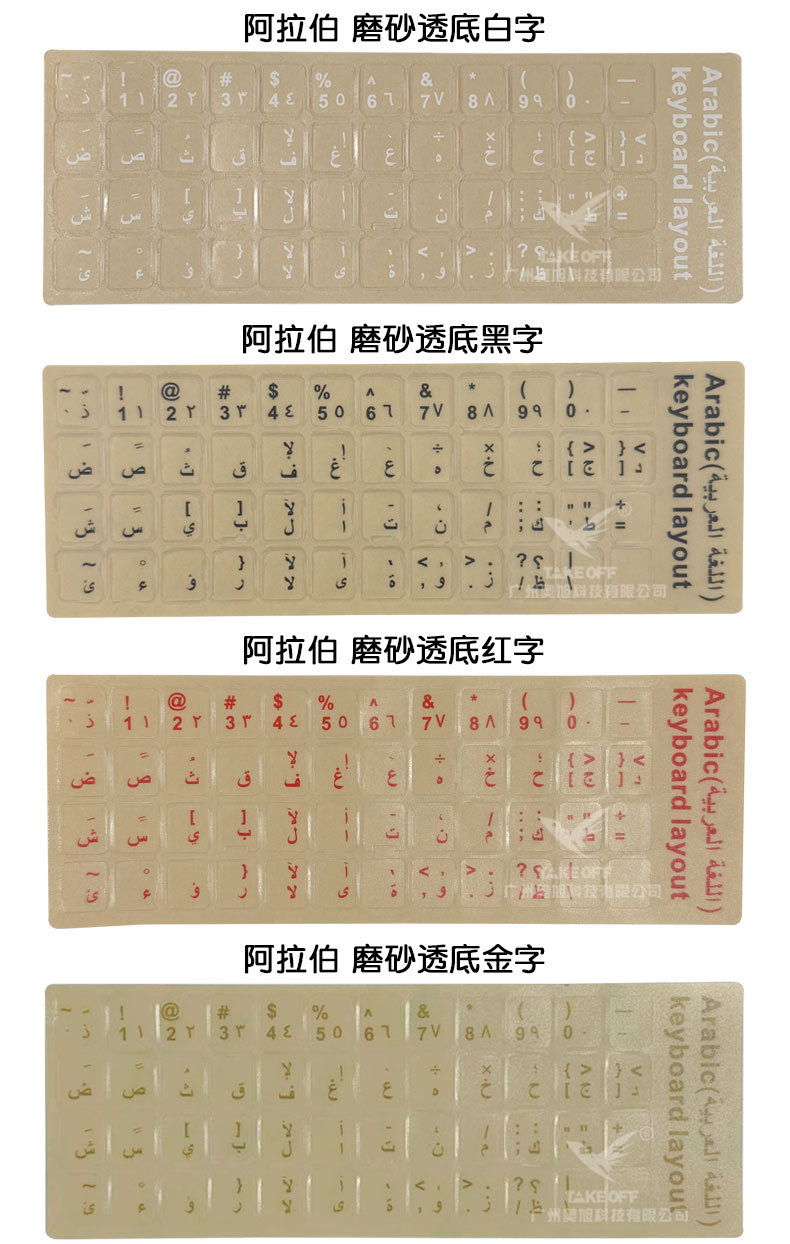 阿拉伯 磨砂透底白字
~ ّ ! @ # $ % ^ & * ( ) —
ذ 1 ١ 2 ٢ 3 ٣ 4 ٤ 5 ٥ 6 ٦ 7 ٧ 8 ٨ 9 ٩ 0 ٠ –
َ ً ُ لإ إ ÷ × ؛ { < } >
ض ص ث ق ف غ ع ه خ ح [ ج ] د
[ ] لأ أ - ، / : : " " +
ش س ي ب ل ا ت ن م ; ك ' ط =
~ ْ } لآ آ ' < , > . ? ؟ |
ئ ء ؤ ر لا ى ة , و . ز / ظ \
Arabic(اللغة العربية)
keyboard layout
TAKE OFF
广州昊旭科技有限公司
阿拉伯 磨砂透底黑字
~ ّ ! @ # $ % ^ & * ( ) —
ذ 1 ١ 2 ٢ 3 ٣ 4 ٤ 5 ٥ 6 ٦ 7 ٧ 8 ٨ 9 ٩ 0 ٠ –
َ ً ُ لإ إ ÷ × ؛ { < } >
ض ص ث ق ف غ ع ه خ ح [ ج ] د
[ ] لأ أ - ، / : : " " +
ش س ي ب ل ا ت ن م ; ك ' ط =
~ ْ } لآ آ ' < , > . ? ؟ |
ئ ء ؤ ر لا ى ة , و . ز / ظ \
Arabic(اللغة العربية)
keyboard layout
TAKE OFF
广州昊旭科技有限公司
阿拉伯 磨砂透底红字
~ ّ ! @ # $ % ^ & * ( ) —
ذ 1 ١ 2 ٢ 3 ٣ 4 ٤ 5 ٥ 6 ٦ 7 ٧ 8 ٨ 9 ٩ 0 ٠ –
َ ً ُ لإ إ ÷ × ؛ { < } >
ض ص ث ق ف غ ع ه خ ح [ ج ] د
[ ] لأ أ - ، / : : " " +
ش س ي ب ل ا ت ن م ; ك ' ط =
~ ْ } لآ آ ' < , > . ? ؟ |
ئ ء ؤ ر لا ى ة , و . ز / ظ \
Arabic(اللغة العربية)
keyboard layout
TAKE OFF
广州昊旭科技有限公司
阿拉伯 磨砂透底金字
~ ّ ! @ # $ % ^ & * ( ) —
ذ 1 ١ 2 ٢ 3 ٣ 4 ٤ 5 ٥ 6 ٦ 7 ٧ 8 ٨ 9 ٩ 0 ٠ –
َ ً ُ لإ إ ÷ × ؛ { < } >
ض ص ث ق ف غ ع ه خ ح [ ج ] د
[ ] لأ أ - ، / : : " " +
ش س ي ب ل ا ت ن م ; ك ' ط =
~ ْ } لآ آ ' < , > . ? ؟ |
ئ ء ؤ ر لا ى ة , و . ز / ظ \
Arabic(اللغة العربية)
keyboard layout
TAKE OFF
广州昊旭科技有限公司